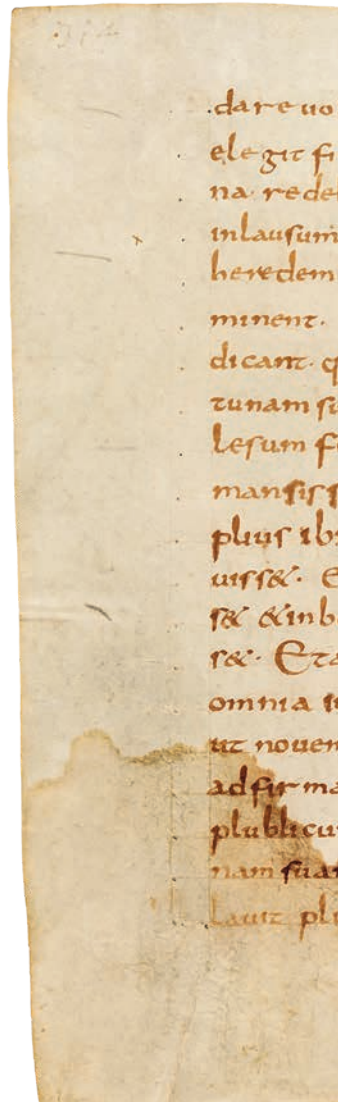 dare uo
elegit fi
na· rede
inlausum
heredem
minent·
dicant· q
tunam su
lesum f
mansiss
plius ib
uiss&· E
s& &inb
s&· Eta
omnia s
ut nouem
adfirma
plublicu
nam suam
lauit pl